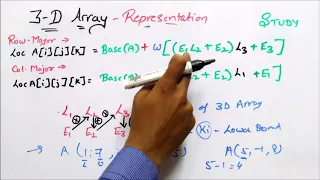 3-D Array - Representation
STUDY
Row-Major →
Loc A[i][j][k] = Base(A) + ω[(E₁L₂+E₂)L₃+E₃]
Col-Major →
Loc A[i][j][k] = Base(A) +E₂)L₁+E₁]
L₁ L₂ L₃
E₁ E₂ E₃
of 3D Array
Lower Bond
→ A(1:7,
A(5,-1,2)
5-1=4